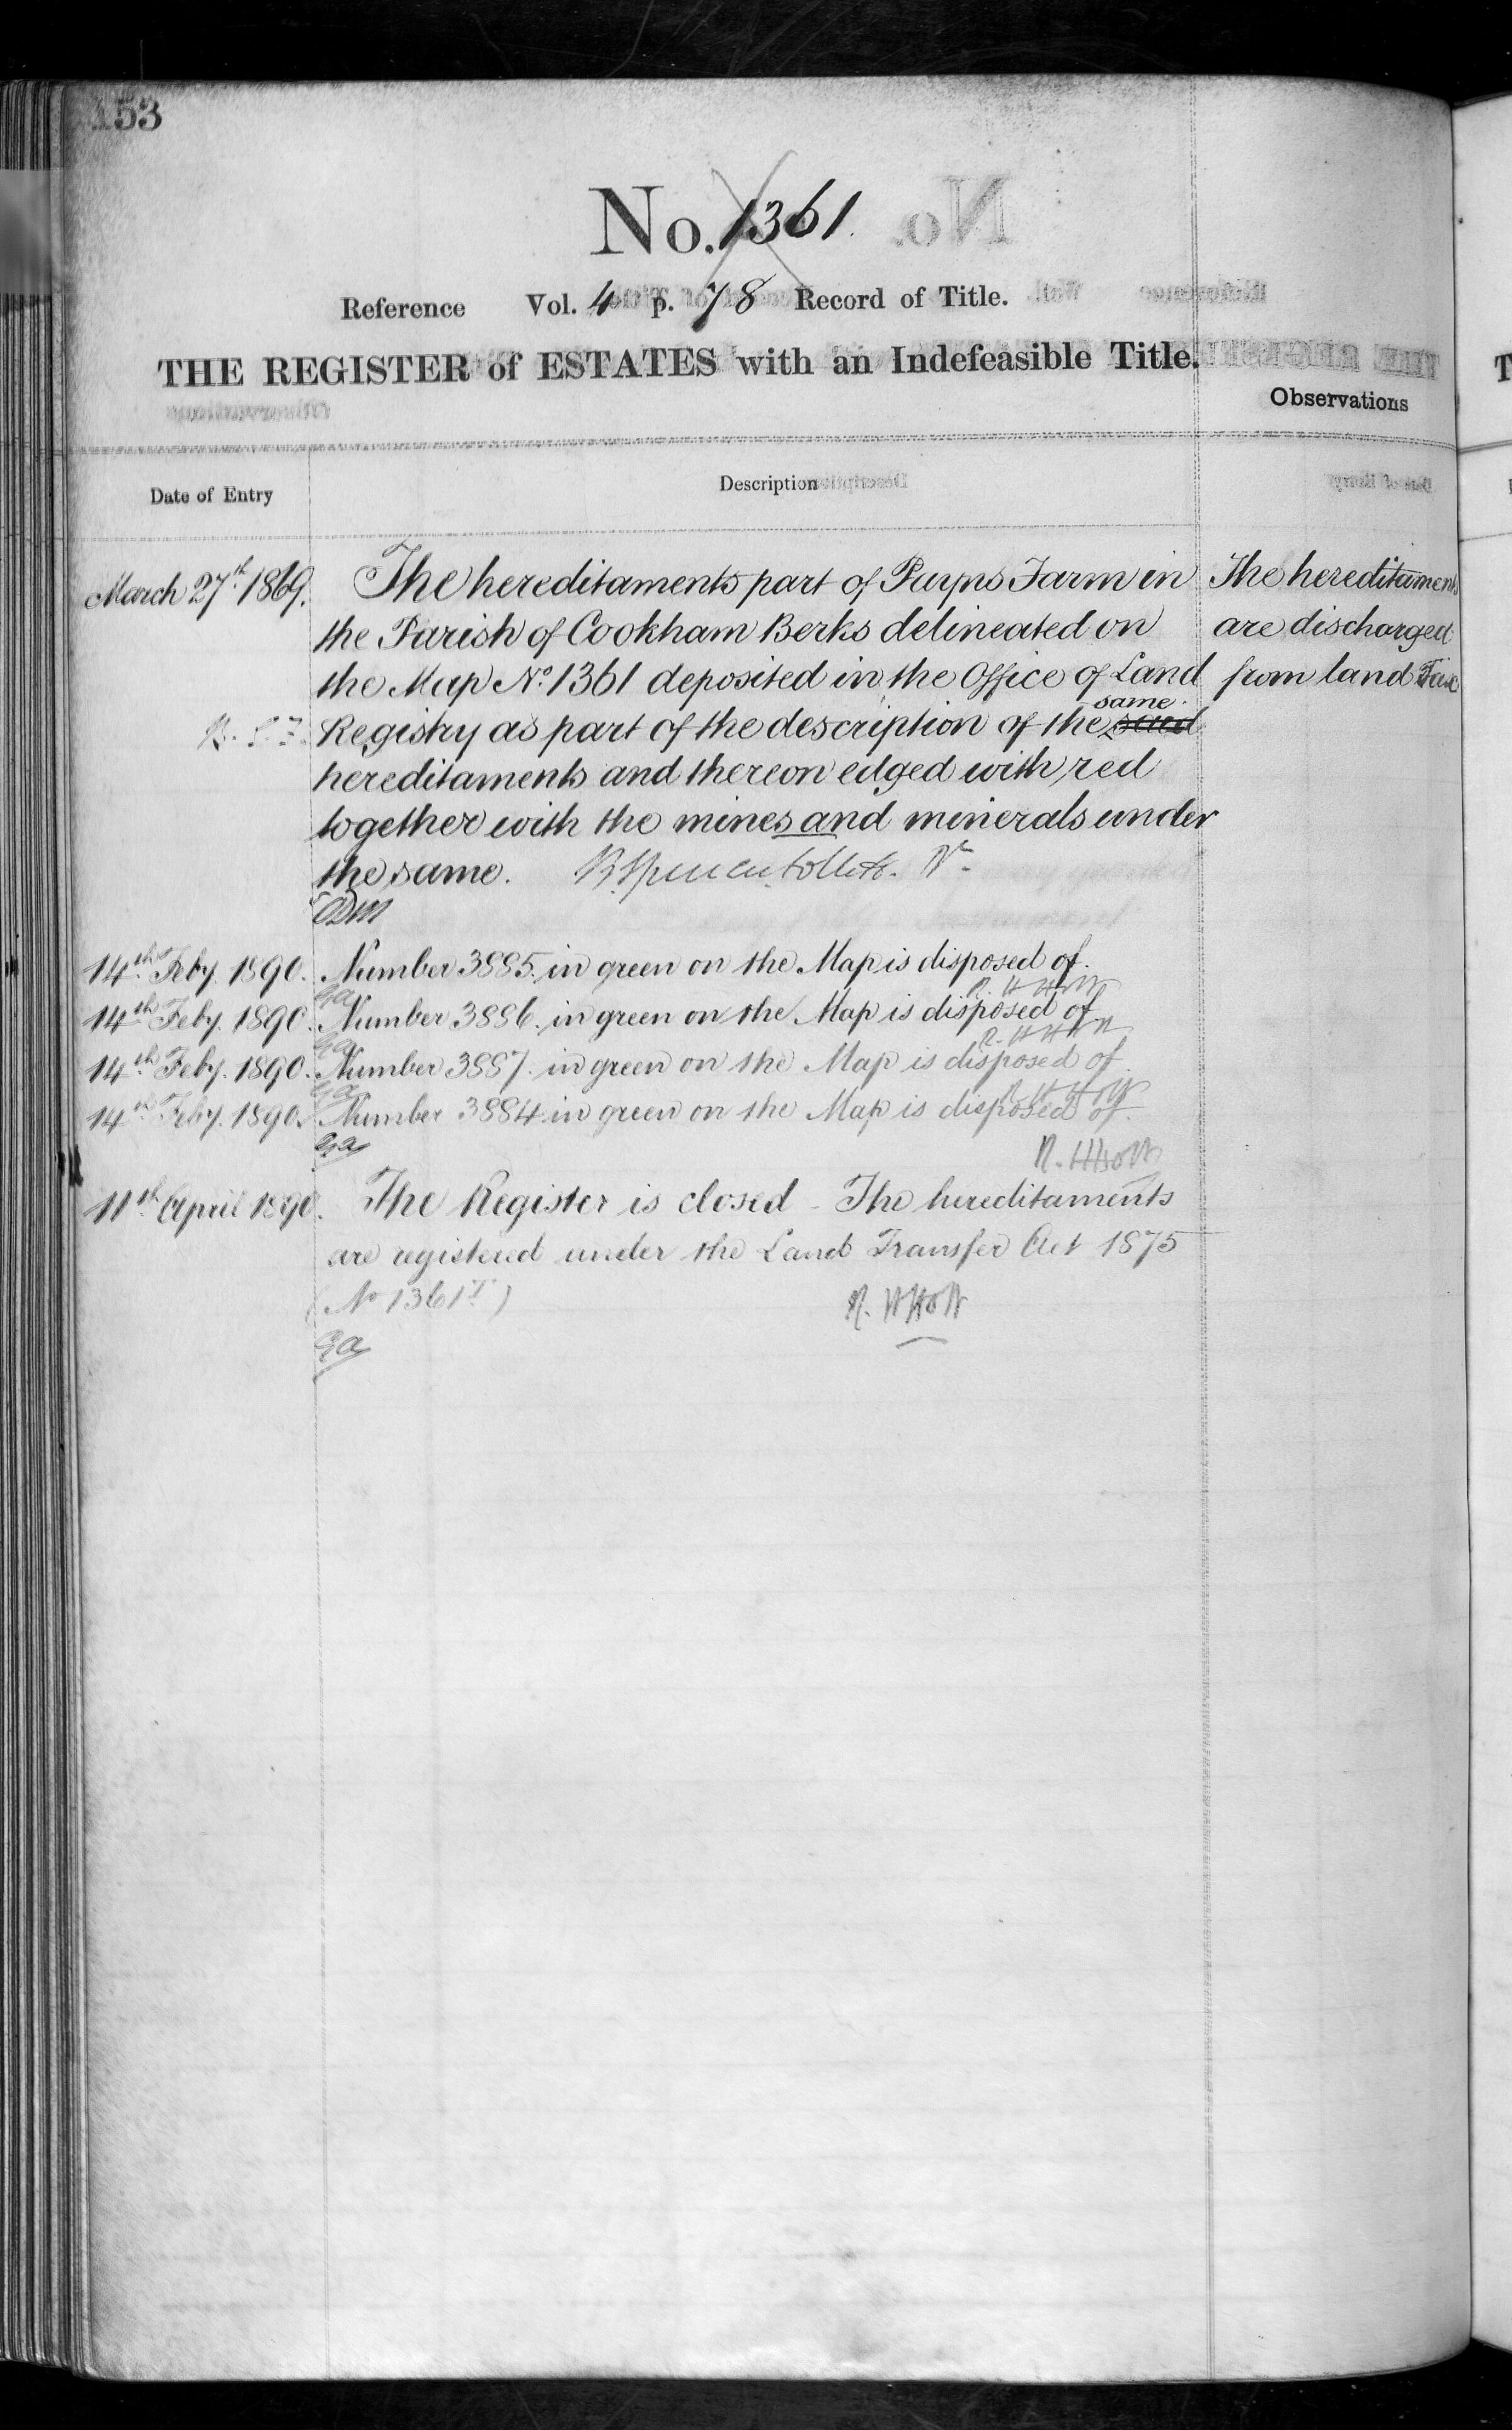 153
No. 1361.
Reference Vol. 4 p. 78 Record of Title.
THE REGISTER of ESTATES with an Indefeasible Title.
Observations
Date of Entry
Description
March 27th 1869. The hereditaments part of Farm in
the Parish of Cookham Berks delineated on
the Map No. 1361 deposited in the Office of Land
Registry as part of the description of the said same
hereditaments and thereon edged with red
together with the mines and minerals under
the same.
The hereditaments
are discharged
from land Tax
14th Feby. 1890. Number 3885. in green on the Map is disposed of.
14th Feby. 1890. Number 3886. in green on the Map is disposed of
14th Feby. 1890. Number 3887. in green on the Map is disposed of.
14th Feby. 1890. Number 3884 in green on the Map is disposed of.
11th April 1890. The Register is closed - The hereditaments
are registered under the Land Transfer Act 1875
(No 1361T)